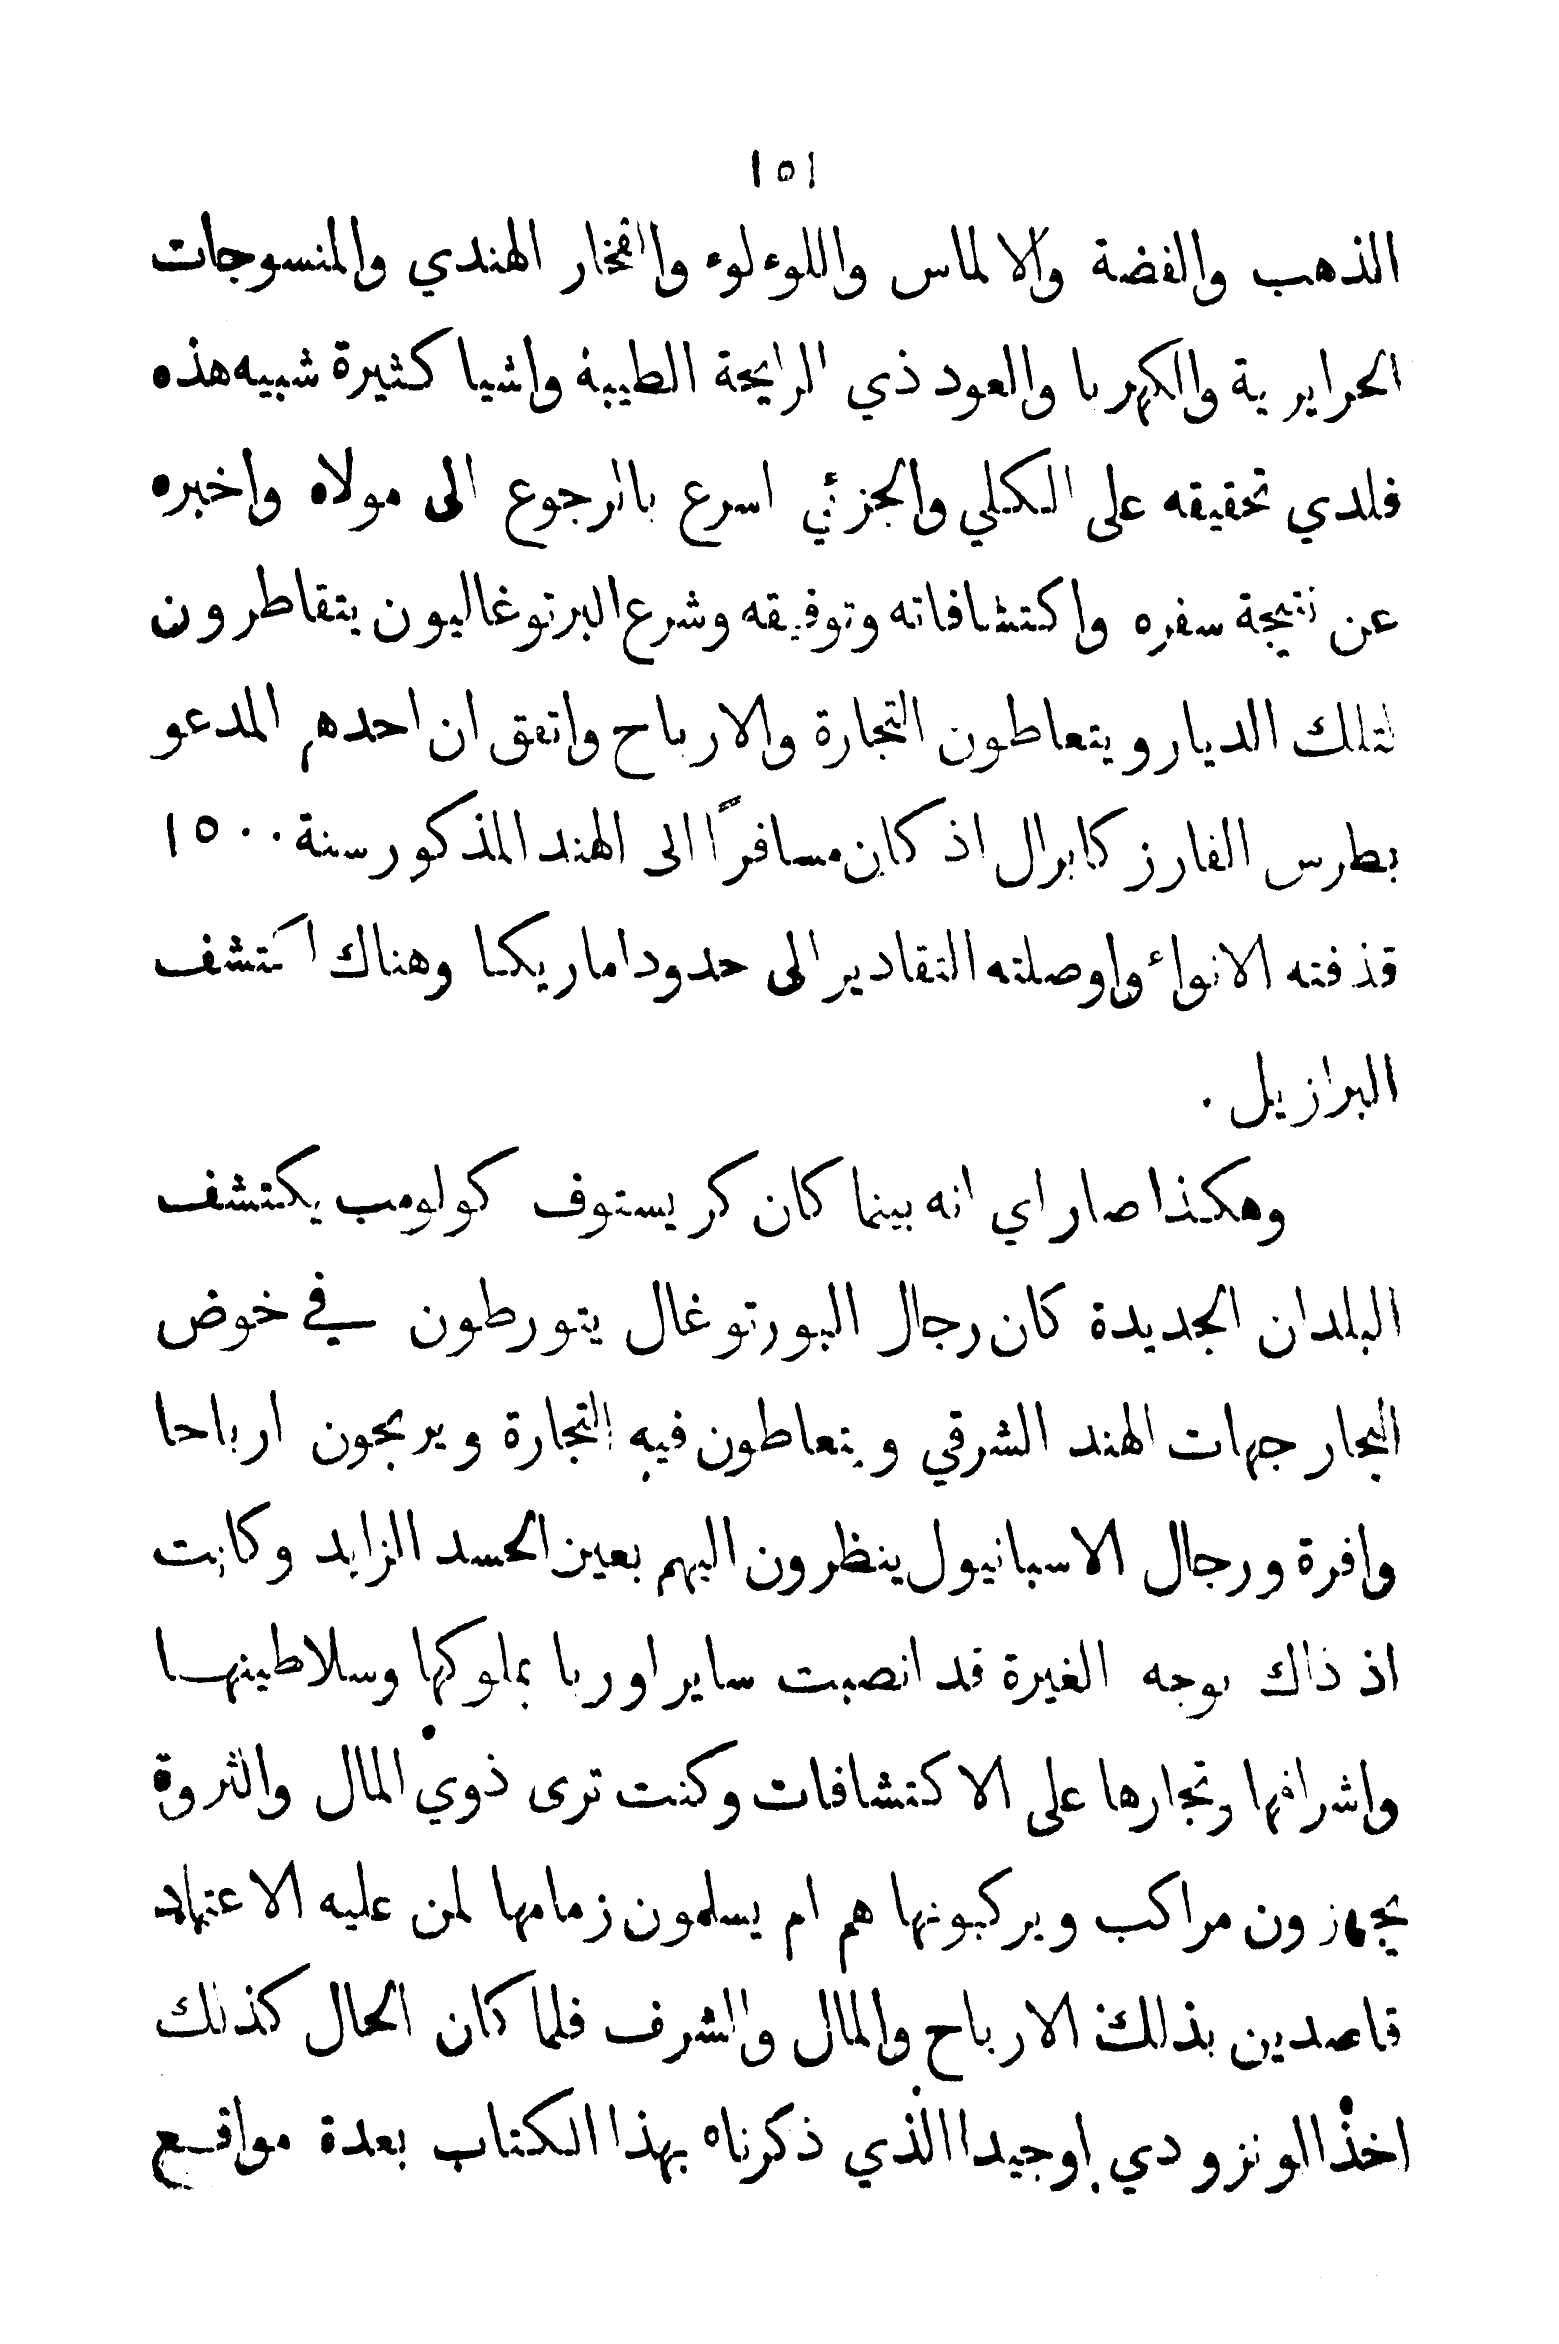 ١٥١
الذهب والفضة والالماس واللوءلوء والفخار الهندي والمنسوجات
الحرايرية والكهربا والعود ذي الرايحة الطيبة واشيا كثيرة شبيه هذه
فلدي تحقيقه على الكلي والجزئي اسرع بالرجوع الى مولاه واخبره
عن نتيجة سفره واكتشافاته وتوفيقه وشرع البرتوغاليون يتقاطرون
لتلك الديار ويتعاطون التجارة والارباح واتفق ان احدهم المدعو
بطرس الفارز كابرال اذ كان مسافرًا الى الهند المذكور سنة ١٥٠٠
قذفته الانواء واوصلته التقادير الى حدود اماريكا وهناك اكتشف
البرازيل .
وهكذا صار اي انه بينما كان كريستوف كولومب يكتشف
البلدان الجديدة كان رجال البورتوغال يتورطون في خوض
البحار جهات الهند الشرقي ويتعاطون فيه التجارة ويربحون ارباحا
وافرة ورجال الاسبانيول ينظرون اليهم بعين الحسد الزايد وكانت
اذ ذاك بوجه الغيرة قد انصبت ساير اوربا بملوكها وسلاطينها
واشرافها وتجارها على الاكتشافات وكنت ترى ذوي المال والثروة
يجهزون مراكب ويركبونها هم ام يسلمون زمامها لمن عليه الاعتماد
قاصدين بذلك الارباح والمال والشرف فلما كان الحال كذلك
اخذ الونزو دي اوجيدا الذي ذكرناه بهذا الكتاب بعدة مواقع